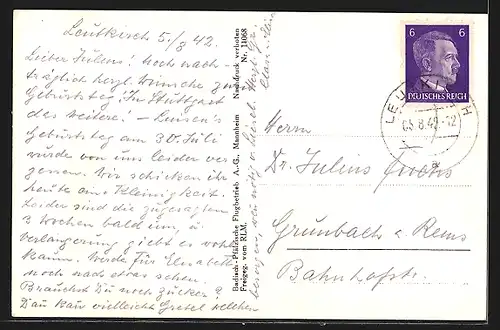 Leutkirch 5./8 42.
Lieber Julius! Noch nach-
träglich herzl. Wünsche zum
Geburtstag! In Stuttgart
des Weitere! – Luisens
Geburtstag am 30. Juli
wurde von uns leider ver
gessen. Wir schicken ihr
heute eine Kleinigkeit.
Leider sind die zugesagten
3 Wochen bald um, u.
Verlängerung giebt es wohl
kaum. Werde Frl. Elisabeth
noch nach etwas sehen.
Brauchst Du noch Zucker?
Dan kan vielleicht Gretel welchen
besorgen, wen nötig
Herzl. Gr.
Badisch-Pfälzische Flugbetrieb A.-G., Mannheim Nachdruck verboten
Freigeg. vom RLM. Nr. 11068
6 6
DEUTSCHES REICH
LEUTKIRCH
05.8.42-12
Herrn
Dr. Julius Fuchs
Grunbach a. Rems
Bahnhofstr.